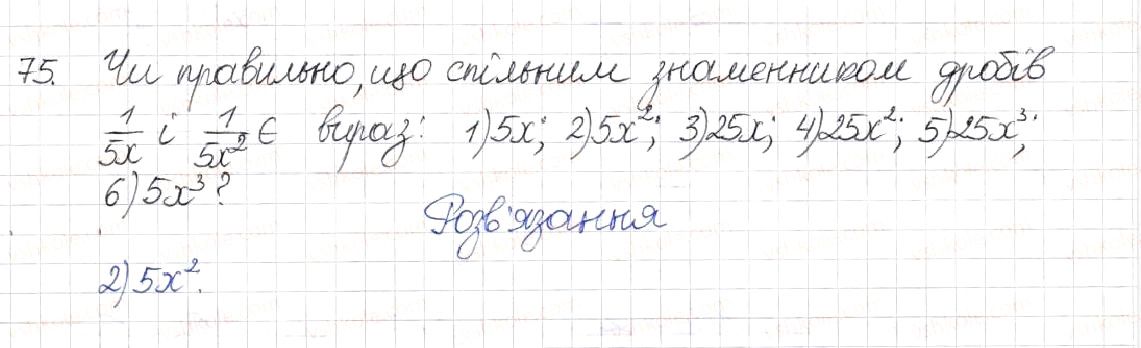 75. Чи правильно, що спільним знаменником дробів
1/5x і 1/5x² є вираз: 1) 5x; 2) 5x²; 3) 25x; 4) 25x²; 5) 25x³;
6) 5x³?
Розв'язання
2) 5x².